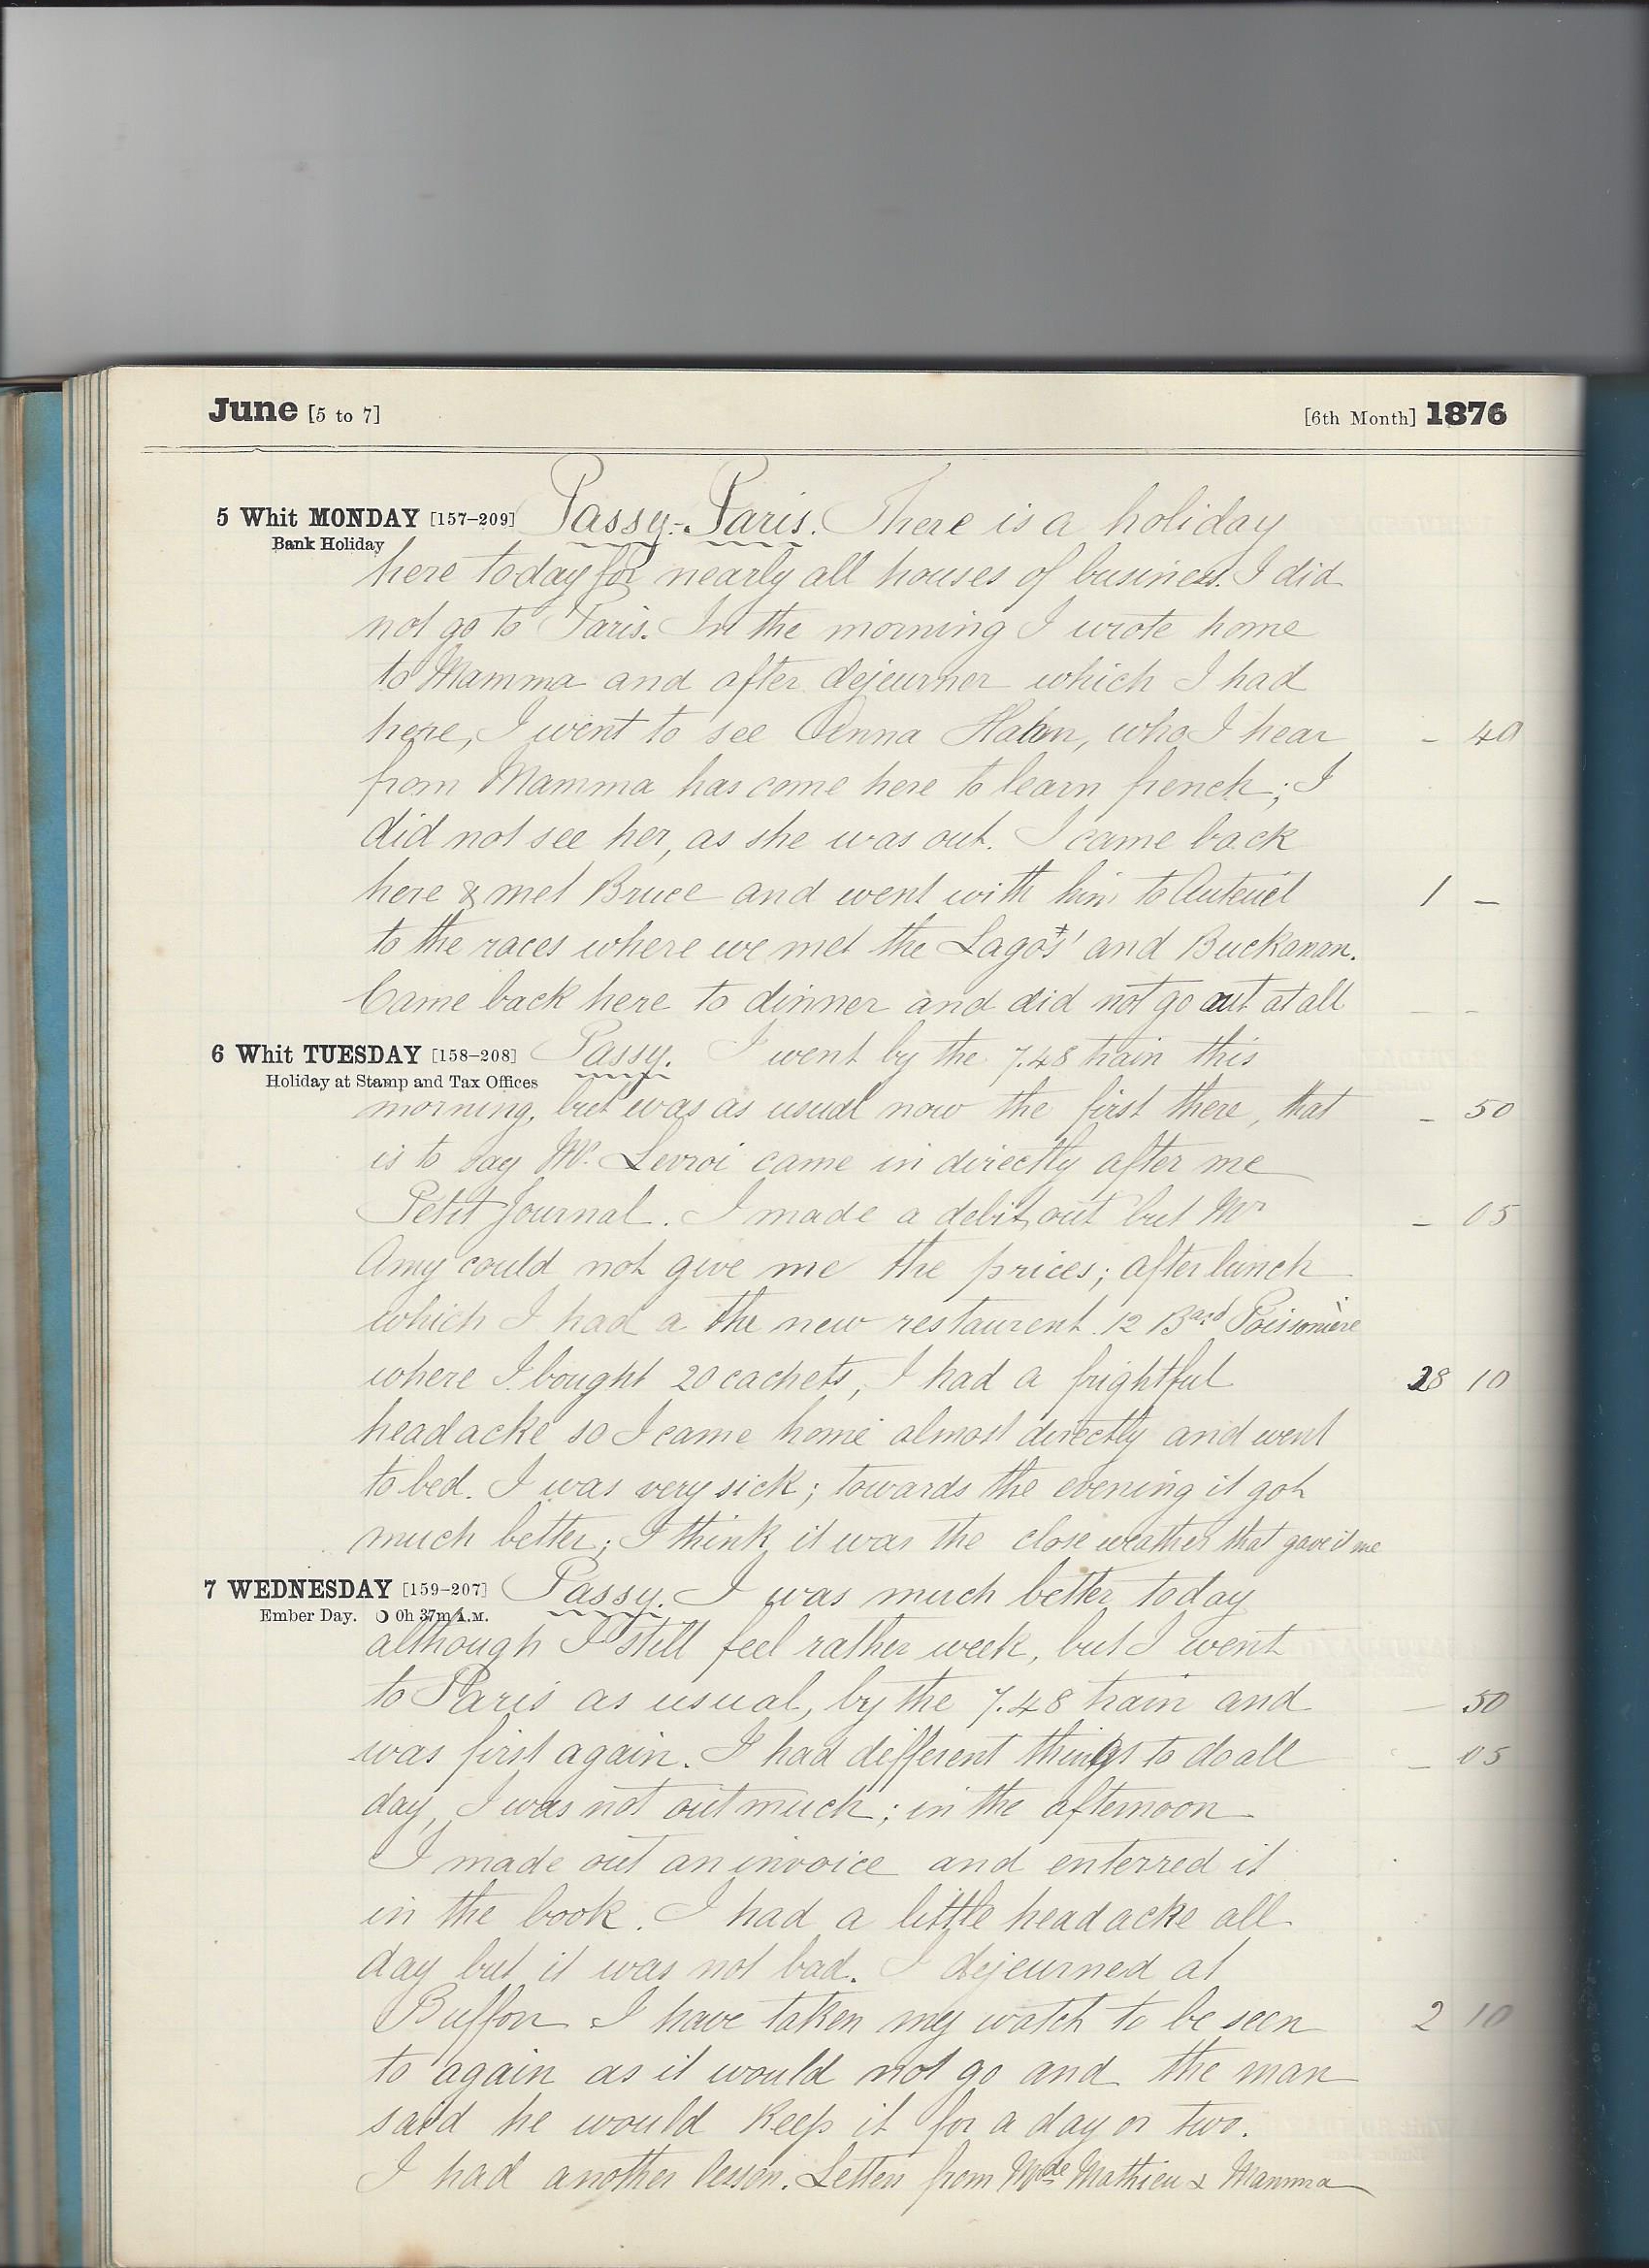 June [5 to 7] [6th Month] 1876
5 Whit MONDAY [157–209] Passy-Paris. There is a holiday
Bank Holiday
here today for nearly all houses of business. I did
not go to Paris. In the morning I wrote home
to Mamma and after dejeurner which I had
here, I went to see Anna Hahn, who I hear – 40
from Mamma has come here to learn french; I
did not see her, as she was out. I came back
here & met Bruce and went with him to Auteuel 1 –
to the races where we met the Lagos' and Buckanan.
Came back here to dinner and did not go out at all – –
6 Whit TUESDAY [158–208] Passy. I went by the 7.48 train this
Holiday at Stamp and Tax Offices
morning, but was as usual now the first there, that – 50
is to say Mr. Levroi came in directly after me
Petit Journal. I made a debit out but Mr – 05
Amy could not give me the prices; after lunch
which I had a the new restaurent. 12 Bard Poissonière
where I bought 20 cachets, I had a frightful 28 10
headacke so I came home almost directly and went
to bed. I was very sick; towards the evening it got
much better; I think it was the close weather that gave it me
7 WEDNESDAY [159–207] Passy. I was much better today
Ember Day. ☽ 0h 37m A.M.
although I still feel rather week, but I went
to Paris as usual, by the 7.48 train and – 50
was first again. I had different things to do all – 05
day, I was not out much; in the afternoon
I made out an invoice and enterred it
in the book. I had a little headacke all
day but it was not bad. I dejeurned at
Buffon I have taken my watch to be seen 2 10
to again as it would not go and the man
said he would keep it for a day or two.
I had another lesson. Letters from Mde Mathieu & Mamma